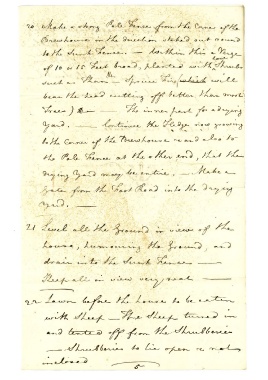 20 Make a strong Pale Fence from the Corner of the
Brewhouse in the direction staked out round
to the Sunk Fence. — Within this a Verge
of 10 or 15 Feet broad, planted with Shrubs
such as Spruce Firs (which will
bear the head cutting off better than most
Trees) — The inner part for a drying
Yard. — Continue the Hedge now growing
to the corner of the Brewhouse — and also to
the Pale Fence at the other end, that the
drying Yard may be entire. — Make a
Gate from the Foot Road into the drying
Yard. —
21 Level all the Ground in view of the
house, humouring the Ground, and
drain into the Sunk Fence —
Sheep all in view very neat —
22 Lawn before the house to be eaten
with Sheep — The Sheep turned in
and off from the Shrubberies
— Shrubberies to lie open & not
inclosed
5